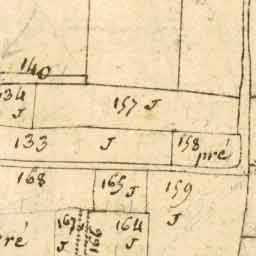 140
134 J
157 J
133 J
158 pré
168
165 J
159 J
167 J
166
164 J
pré